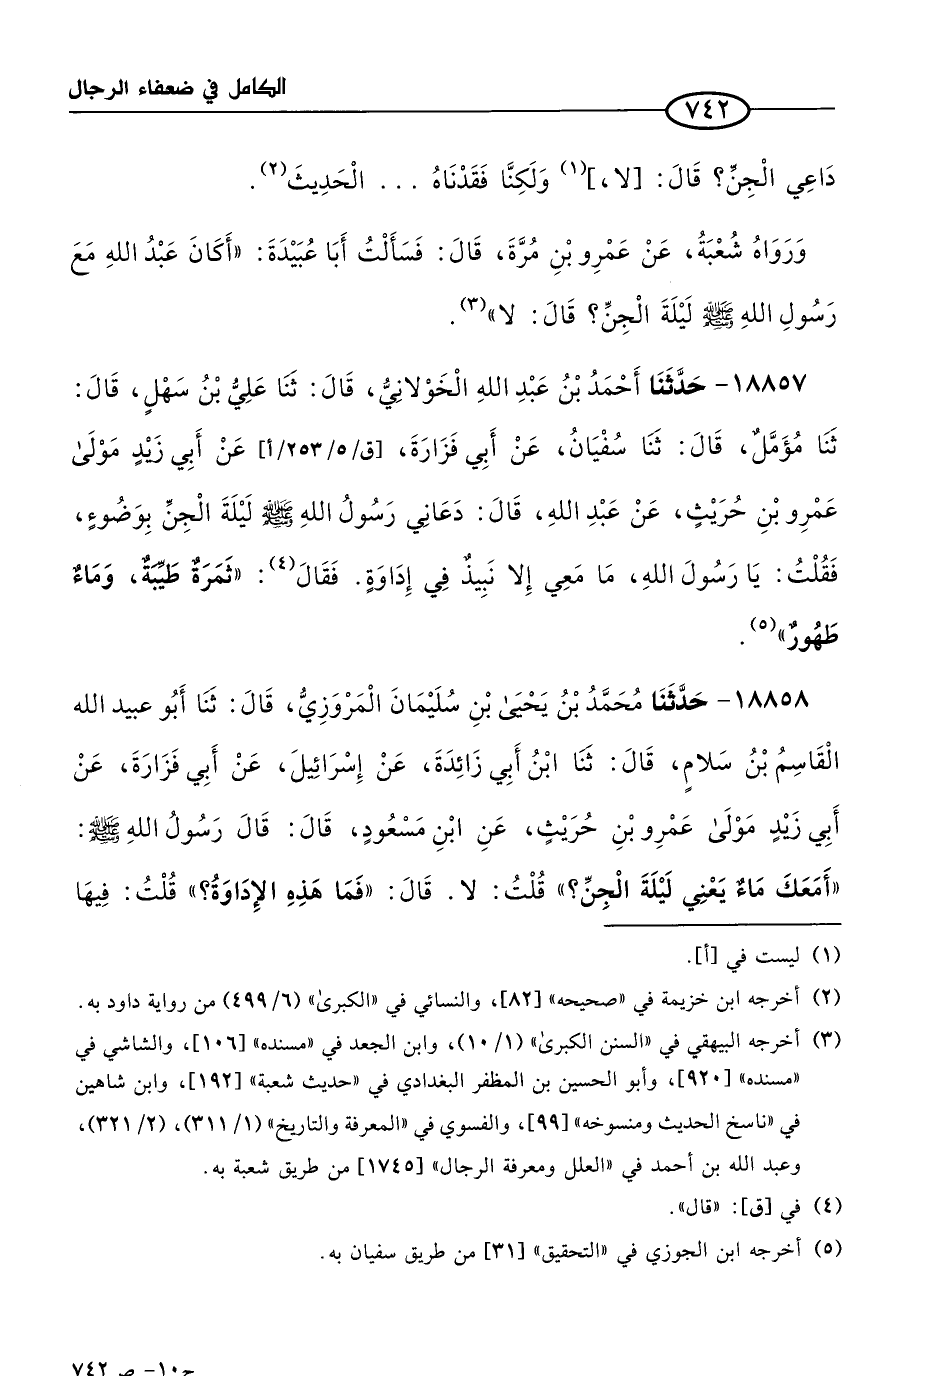 الكامل في ضعفاء الرجال
٧٤٢
دَاعِي الْجِنِّ؟ قَالَ: [لا،]⁽١⁾ وَلَكِنَّا فَقَدْنَاهُ ... الْحَدِيثَ⁽٢⁾.
وَرَوَاهُ شُعْبَةُ، عَنْ عَمْرِو بْنِ مُرَّةَ، قَالَ: فَسَأَلْتُ أَبَا عُبَيْدَةَ: «أَكَانَ عَبْدُ اللهِ مَعَ
رَسُولِ اللهِ ﷺ لَيْلَةَ الْجِنِّ؟ قَالَ: لا»⁽٣⁾.
١٨٨٥٧- حَدَّثَنَا أَحْمَدُ بْنُ عَبْدِ اللهِ الْخَوْلانِيُّ، قَالَ: ثَنَا عَلِيُّ بْنُ سَهْلٍ، قَالَ:
ثَنَا مُؤَمَّلٌ، قَالَ: ثَنَا سُفْيَانُ، عَنْ أَبِي فَزَارَةَ، [ق/٢٥٣/٥/أ] عَنْ أَبِي زَيْدٍ مَوْلَىٰ
عَمْرِو بْنِ حُرَيْثٍ، عَنْ عَبْدِ اللهِ، قَالَ: دَعَانِي رَسُولُ اللهِ ﷺ لَيْلَةَ الْجِنِّ بِوَضُوءٍ،
فَقُلْتُ: يَا رَسُولَ اللهِ، مَا مَعِي إِلا نَبِيذٌ فِي إِدَاوَةٍ. فَقَالَ⁽٤⁾: «ثَمَرَةٌ طَيِّبَةٌ، وَمَاءٌ
طَهُورٌ»⁽٥⁾.
١٨٨٥٨- حَدَّثَنَا مُحَمَّدُ بْنُ يَحْيَىٰ بْنِ سُلَيْمَانَ الْمَرْوَزِيُّ، قَالَ: ثَنَا أَبُو عبيد الله
الْقَاسِمُ بْنُ سَلامٍ، قَالَ: ثَنَا ابْنُ أَبِي زَائِدَةَ، عَنْ إِسْرَائِيلَ، عَنْ أَبِي فَزَارَةَ، عَنْ
أَبِي زَيْدٍ مَوْلَىٰ عَمْرِو بْنِ حُرَيْثٍ، عَنِ ابْنِ مَسْعُودٍ، قَالَ: قَالَ رَسُولُ اللهِ ﷺ:
«أَمَعَكَ مَاءٌ يَعْنِي لَيْلَةَ الْجِنِّ؟» قُلْتُ: لا. قَالَ: «فَمَا هَذِهِ الإِدَاوَةُ؟» قُلْتُ: فِيهَا
(١) ليست في [أ].
(٢) أخرجه ابن خزيمة في «صحيحه» [٨٢]، والنسائي في «الكبرىٰ» (٤٩٩/٦) من رواية داود به.
(٣) أخرجه البيهقي في «السنن الكبرىٰ» (١٠/١)، وابن الجعد في «مسنده» [١٠٦]، والشاشي في
«مسنده» [٩٢٠]، وأبو الحسين بن المظفر البغدادي في «حديث شعبة» [١٩٢]، وابن شاهين
في «ناسخ الحديث ومنسوخه» [٩٩]، والفسوي في «المعرفة والتاريخ» (٣١١/١)، (٣٢١/٢)،
وعبد الله بن أحمد في «العلل ومعرفة الرجال» [١٧٤٥] من طريق شعبة به.
(٤) في [ق]: «قال».
(٥) أخرجه ابن الجوزي في «التحقيق» [٣١] من طريق سفيان به.
ج١٠- ص ٧٤٢